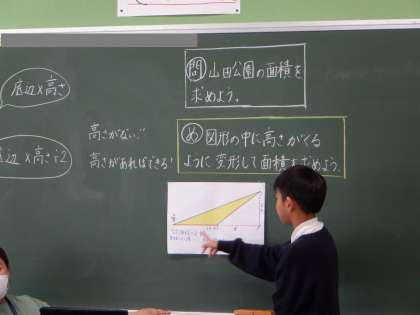 問 山田公園の面積を
求めよう。
底辺×高さ
め 図形の中に高さがくる
ように変形して面積を求めよう。
高さがない
高さがあればできる!
底辺×高さ÷2